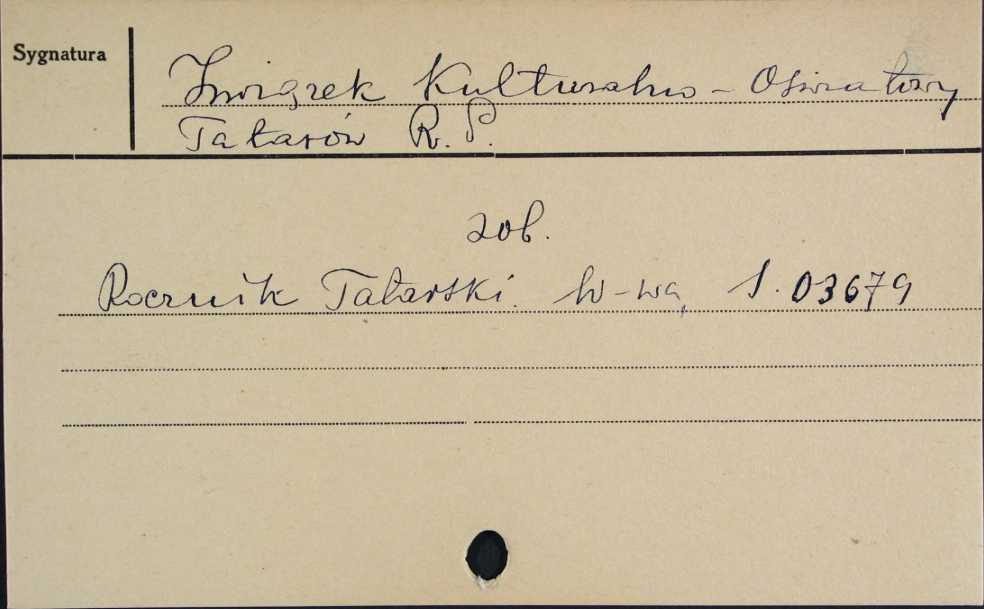 Sygnatura
Związek Kulturalno - Oświatowy
Tatarów R. P.
zob.
Rocznik Tatarski. W-wa, S. 03679